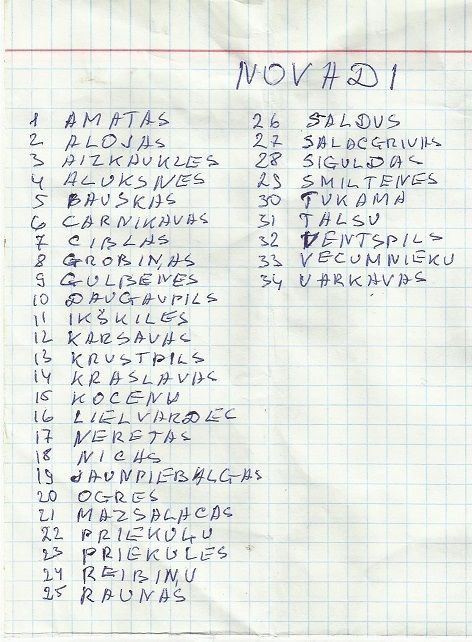 NOVADI
1 AMATAS
2 ALOJAS
3 AIZKAUKLES
4 ALUKSNES
5 BAUSKAS
6 CARNIKAVAS
7 CIBLAS
8 GROBIŅAS
9 GULBENES
10 DAUGAVPILS
11 IKŠKILES
12 KARSAVAS
13 KRUSTPILS
14 KRASLAVAS
15 KOCENU
16 LIELVARDES
17 NERETAS
18 NICAS
19 JAUNPIEBALGAS
20 OGRES
21 MAZSALACAS
22 PRIEKUĻU
23 PRIEKULES
24 REIBIŅU
25 RAUNAS
26 SALDUS
27 SALACGRIVAS
28 SIGULDAS
29 SMILTENES
30 TUKAMA
31 TALSU
32 VENTSPILS
33 VECUMNIEKU
34 VARKAVAS